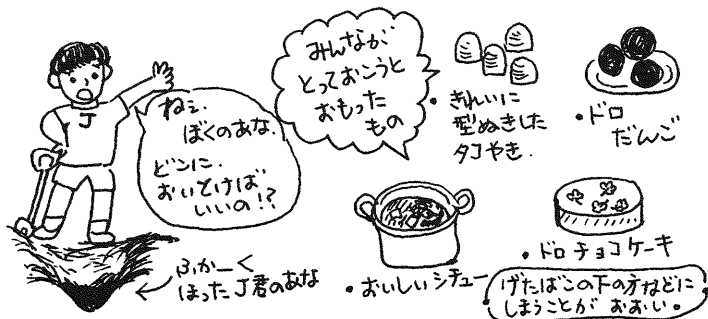 J
ねぇ.
ぼくのあな.
どこに.
おいとけば
いいの!?
ふかーく
ほったJ君のあな
みんなが
とっておこうと
おもった
もの
・きれいに
型ぬきした
タコやき.
・ドロ
だんご
・おいしいシチュー
・ドロチョコケーキ
げたばこの下の方などに
しまうことがおおい。